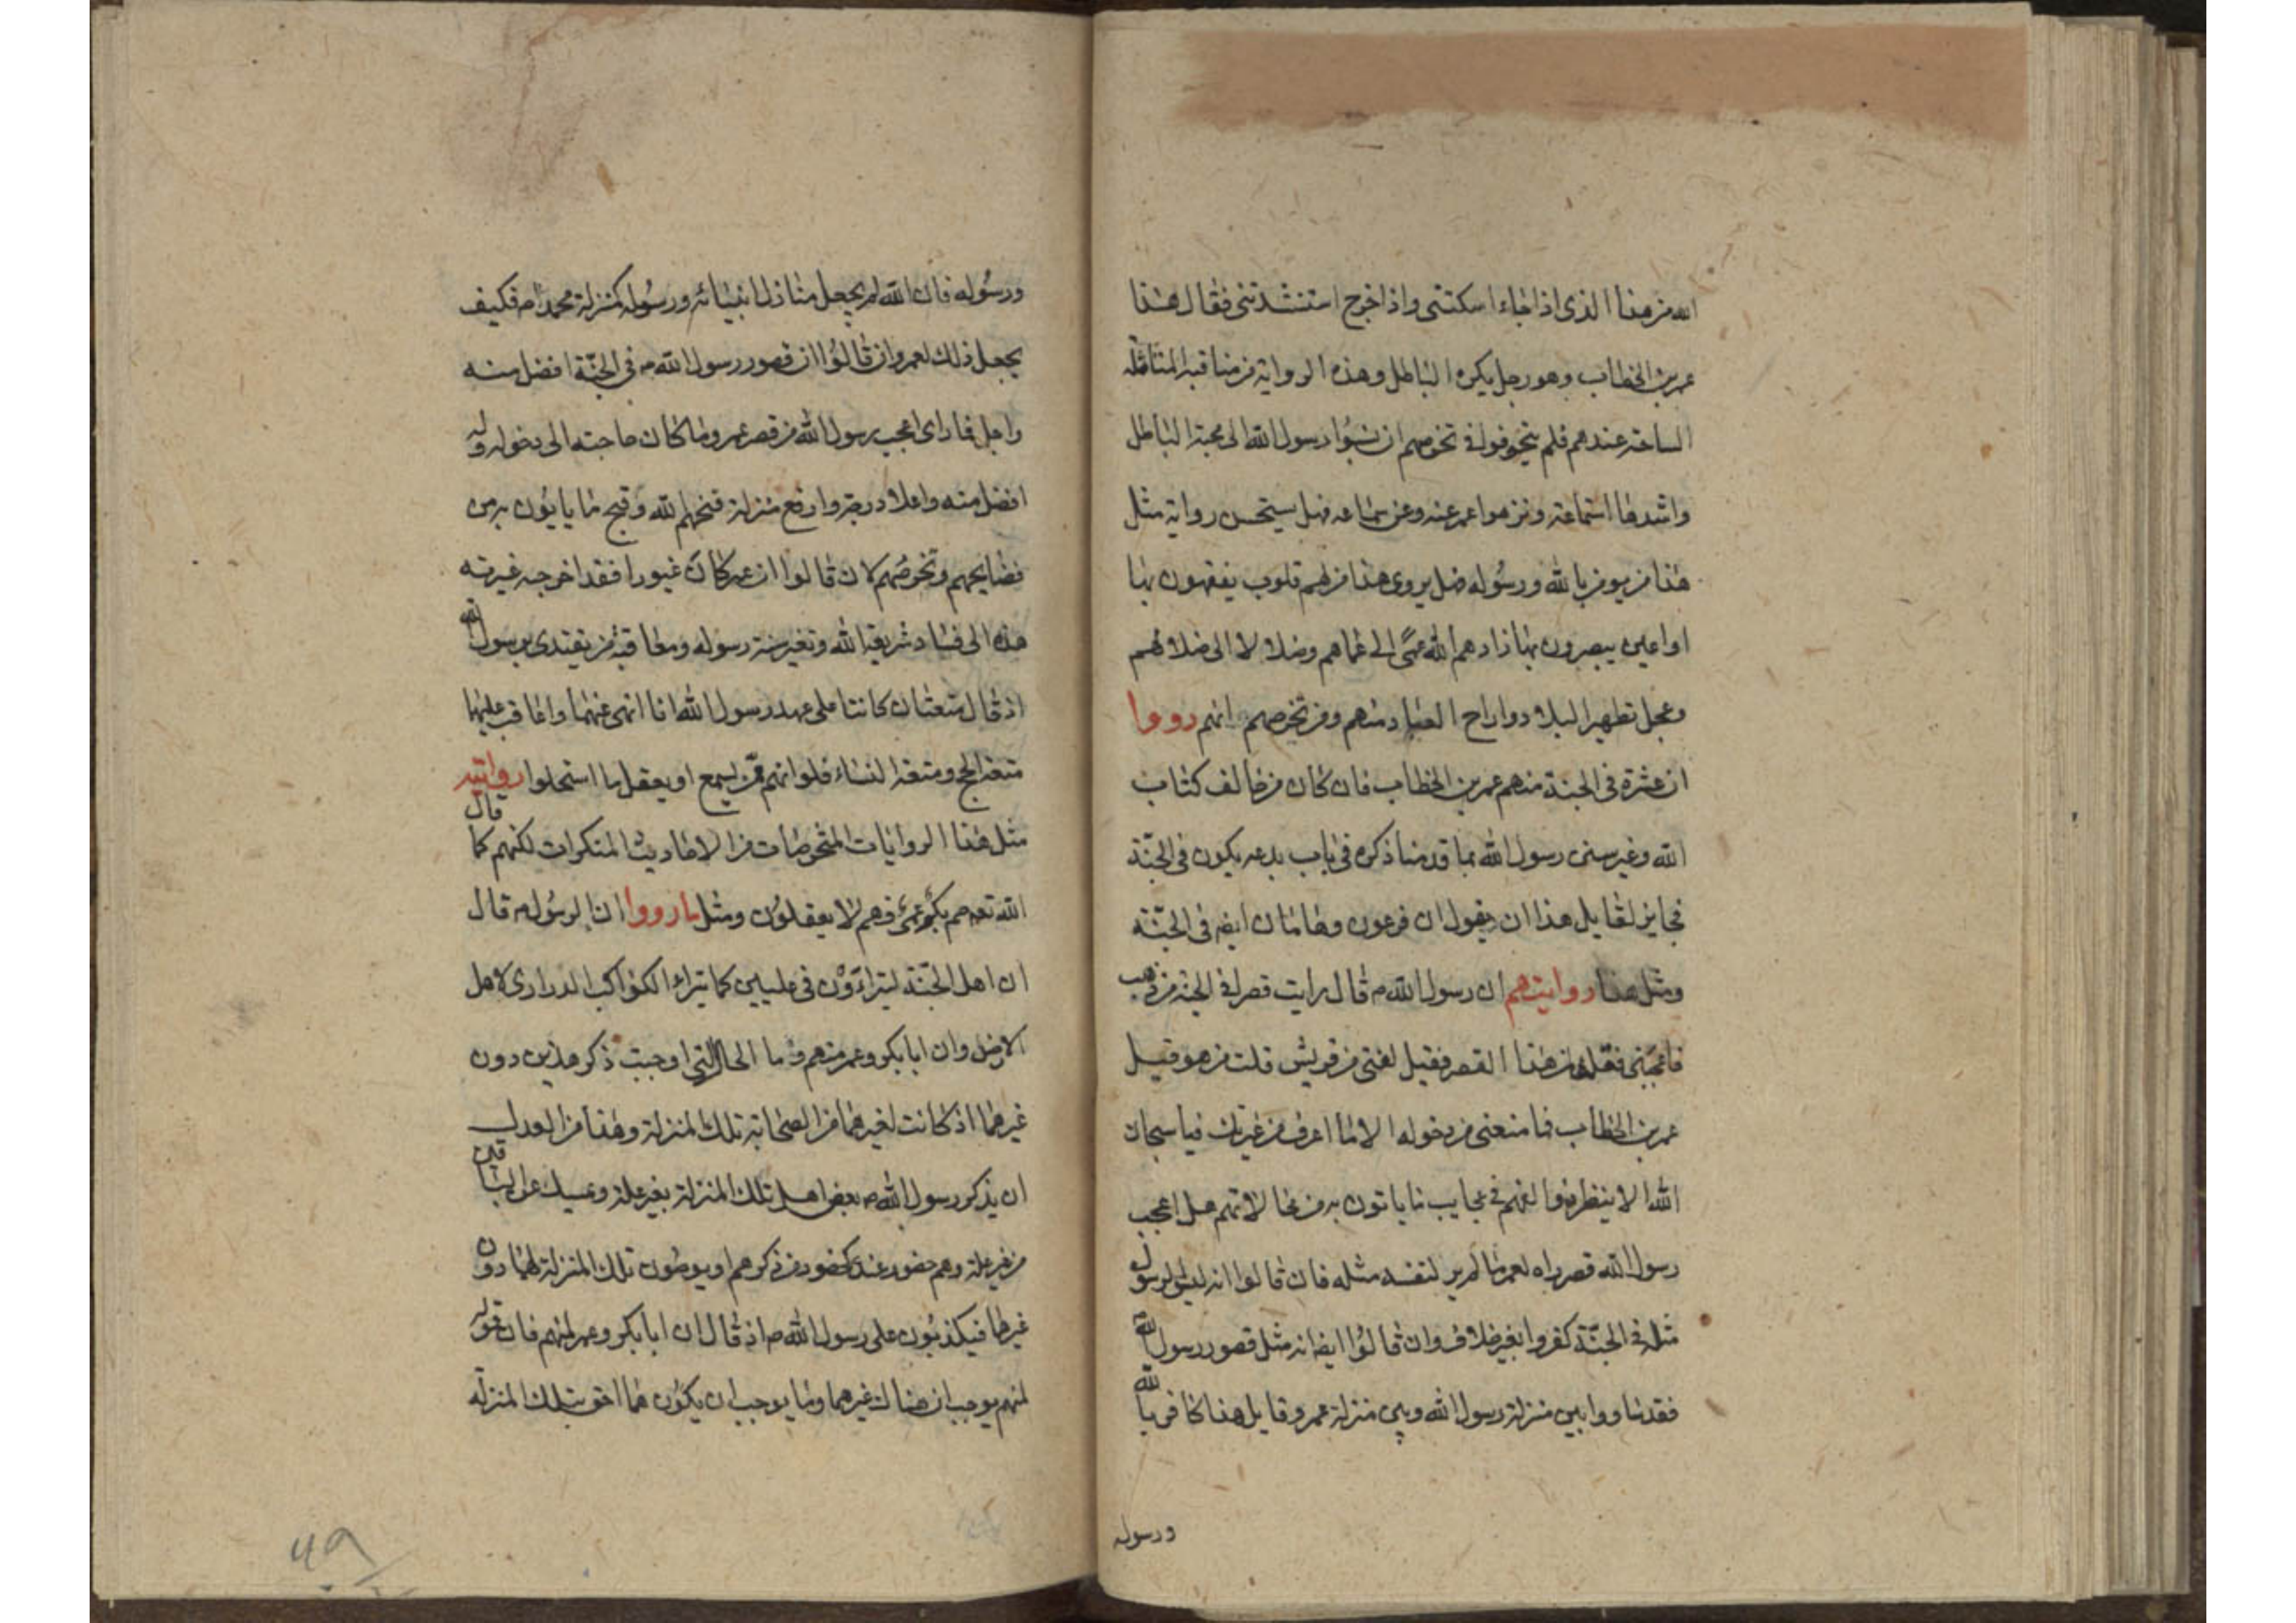 الله من هذا الذى اذا جاء اسكتنى واذا خرج استنشدتنى فقال هذا
عمر بن الخطاب وهو رجل يكره الباطل وهذه الرواية من مناقبه
عندهم فلم فى تخرصهم ان رسول الله الى محبة الباطل
استماعه ونزهوا عمر عنه وعن سماعه فهل يستحسن رواية مثل
هذا من يومن بالله ورسوله هل يروى هذا من لهم قلوب يفقهون بها
او اعين يبصرون بها زادهم الله عمًى الى عماهم وضلالا الى ضلالهم
وعجل تطهير البلاد واراح العباد منهم ومن تخرصهم انهم رووا
ان عشرة فى الجنة منهم عمر بن الخطاب فان كان من خالف كتاب
الله وغير سنن رسول الله بما قدمنا ذكره فى باب بدعه يكون فى الجنّة
فجايز لقايل هذا ان يقول ان فرعون وهامان ايضه فى الجنّة
ومثل هذا روايتهم ان رسول الله ص قال رايت قصرا فى الجنة من ذهب
فاعجبنى فقلت لمن هذا القصر فقيل لفتى من قريش قلت من هو قيل
عمر بن الخطاب فما منعنى من دخوله الا ما اعرف من غيرتك فيا سبحان
الله الا ينظروا فى عجايب ما ياتون به من محالاتهم هل اعجب
رسول الله قصر راه لعمر ما لم ير لنفسه مثله فان قالوا انه ليس لرسول
مثله فى الجنّة كفروا بغير خلاف وان قالوا ايضه انه مثل قصور رسول الله
فقد ساووا بين منزلة رسول الله وبين منزلة عمر وقايل هذا كافر بالله
ورسوله
ورسوله فان الله لم يجعل منازل انبيائه ورسوله كمنزلة محمد ص فكيف
يجعل ذلك لعمر وان قالوا ان قصور رسول الله ص فى الجنّة افضل منه
واجل فما راى اعجب رسول الله من قصر عمر وما كان حاجته الى دخوله وله
افضل منه واعلا درجة وارفع منزلة قبحهم الله وقبح ما ياتون به من
فضايحهم وتخرصهم لان قالوا ان عمر كان غيورا فقد اخرجه غيرته
هذه الى فساد شريعة الله وتغير سنة رسوله ومعاقبة من يقتدى برسول الله
اذ قال متعتان كانتا على عهد رسول الله انا انهى عنهما واعاقب عليهما
متعة الحج ومتعة النساء فلو انهم ممّن يسمع او يعقل ما استحلوا رواية
مثل هذا الروايات المتخرصات من الاحاديث المنكرات لكنهم كما قال
الله تعه صم بكم عمى فهم لا يعقلون ومثل ما رووا ان الرسول ص قال
ان اهل الجنّة ليتراءَوْن فى عليين كما يتراء الكواكب الدرارى لاهل
الارض وان ابا بكر وعمر منهم وما الحال التى اوجبت ذكر هذين دون
غيرهما اذ كانت لغيرهما من الصحابة تلك المنزلة وهذا من العدل
ان يذكر رسول الله ص بعض اهل تلك المنزلة بغير علة ويمسك عن الباقين
من غير علة وهم حضور عنده كحضور من ذكرهم او يوصون تلك المنزلة لهما دون
غيرهما فيكذبون على رسول الله ص اذ قال ان ابا بكر وعمر لمنهم فان قوله
لمنهم يوجب ان هناك غيرهما وما يوجب ان يكون هما احق بتلك المنزلة